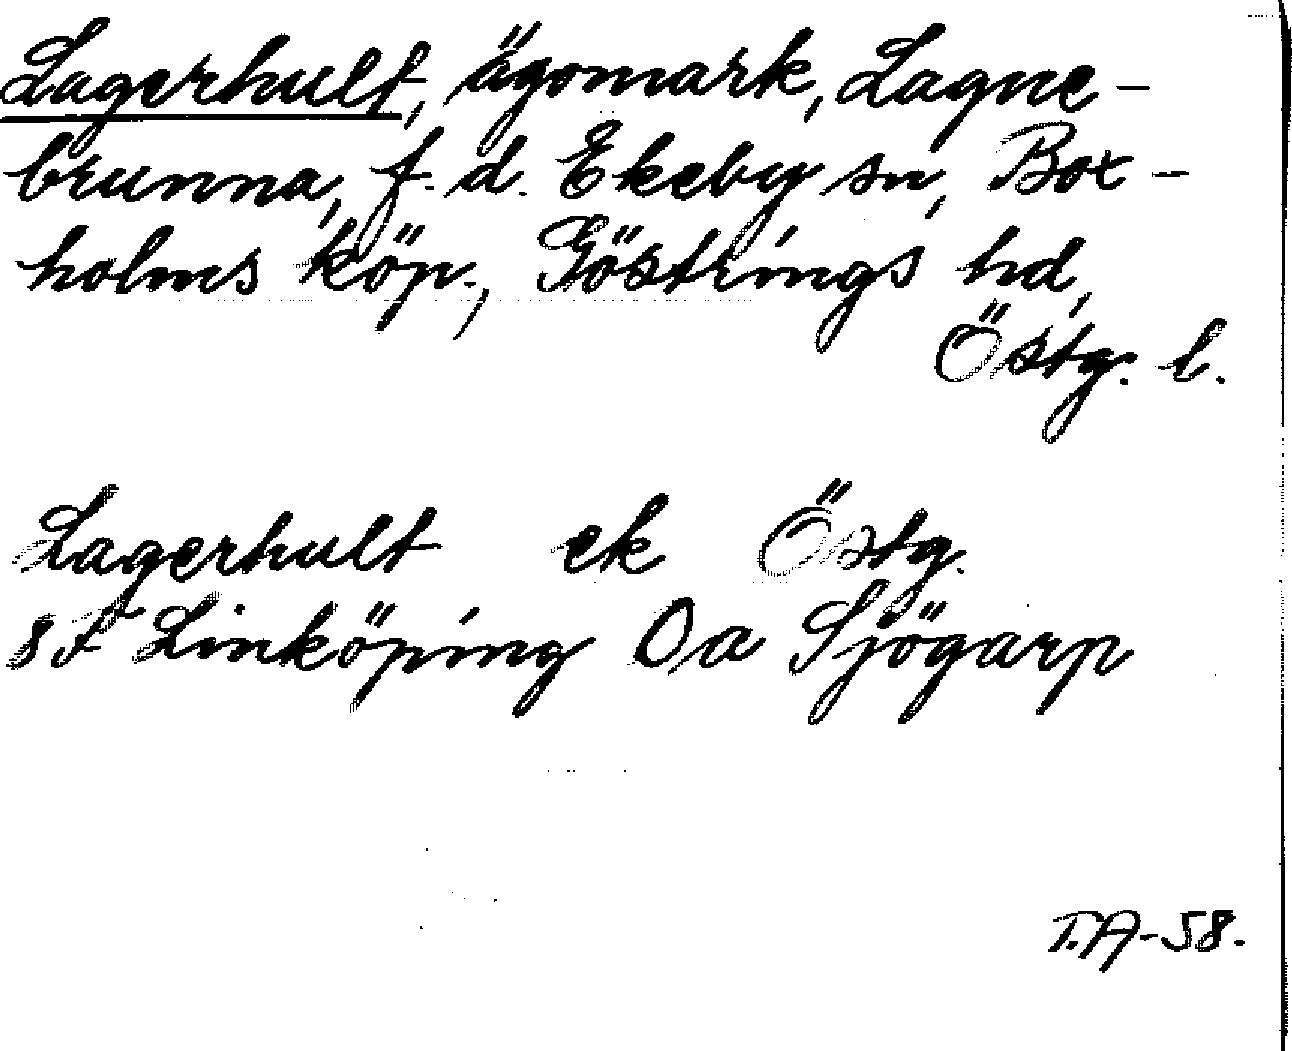 Lagerhult, ägomark, Lagne-
brunna, f. d. Ekeby sn, Box-
holms köp., Göstrings hd,
Östg. l.
Lagerhult ek Östg.
8 F Linköping 0a Sjögarp
T.A-58.